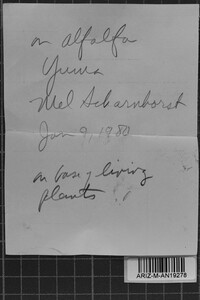 on alfalfa
Yuma
Mel Scharnhorst
Jan 9, 1980
on base of living
plants
ARIZ-M-AN19278